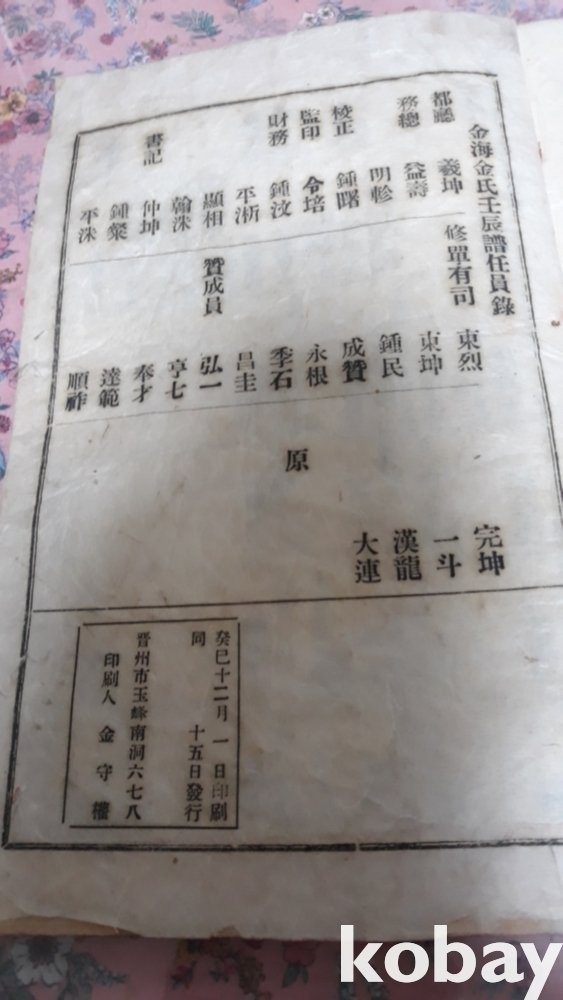 金海金氏壬辰譜任員錄
都廳 義坤
務總 益壽
明軫
校正 鍾曙
監印 令培
財務 鍾汶
平淅
顯相
翰洙
書記 仲坤
鍾粲
平洙
修單有司
東烈
東坤
鍾民
成贊
永根
季石
昌圭
贊成員 弘一
亨七
奉才
達範
順祚
原
完坤
一斗
漢龍
大連
癸巳十二月一日印刷
同 十五日發行
晋州市玉峰南洞六七八
印刷人 金守權
kobay